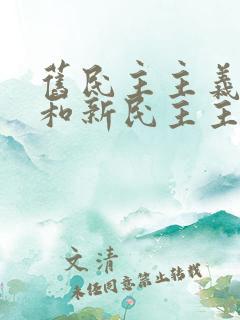 舊民主主義
和新民主主
文清
未经同意禁止转载